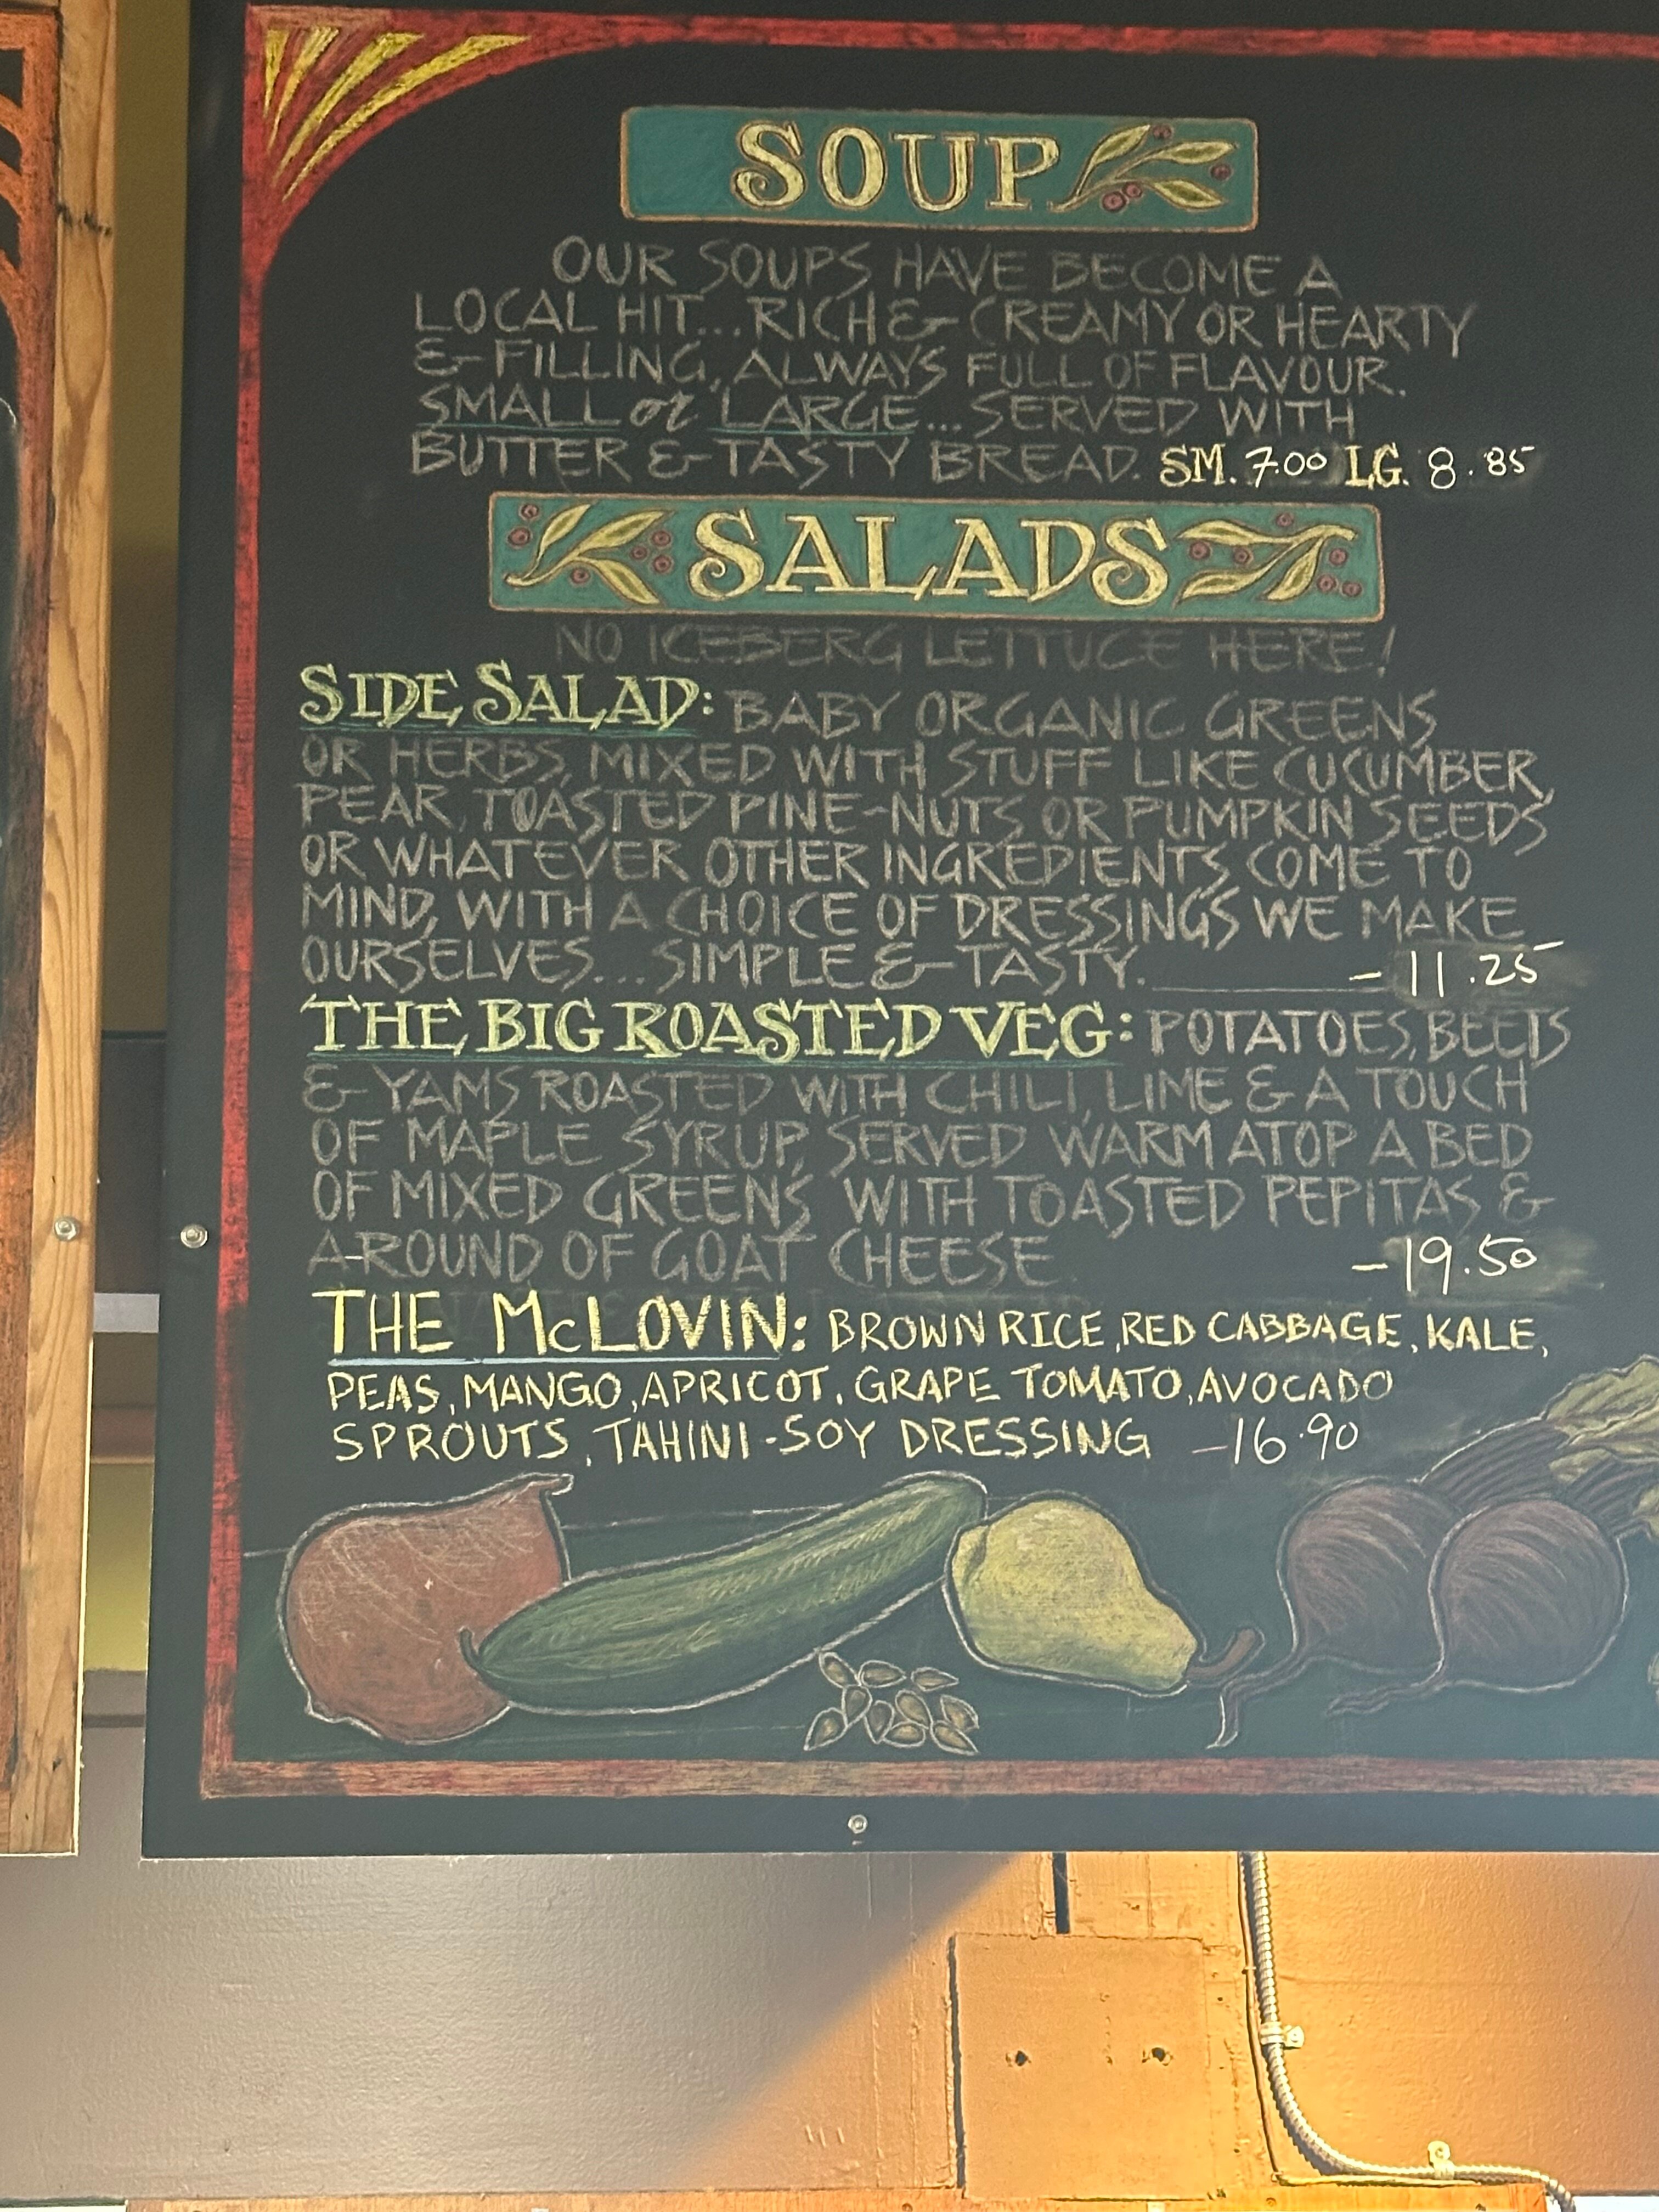 SOUP
OUR SOUPS HAVE BECOME A
LOCAL HIT... RICH & CREAMY OR HEARTY
& FILLING, ALWAYS FULL OF FLAVOUR.
SMALL or LARGE... SERVED WITH
BUTTER & TASTY BREAD. SM. 7.00 LG. 8.85
SALADS
NO ICEBERG LETTUCE HERE!
SIDE SALAD: BABY ORGANIC GREENS
OR HERBS, MIXED WITH STUFF LIKE CUCUMBER,
PEAR, TOASTED PINE-NUTS OR PUMPKIN SEEDS
OR WHATEVER OTHER INGREDIENTS COME TO
MIND, WITH A CHOICE OF DRESSINGS WE MAKE
OURSELVES... SIMPLE & TASTY. - 11.25
THE BIG ROASTED VEG: POTATOES, BEETS
& YAMS ROASTED WITH CHILI, LIME & A TOUCH
OF MAPLE SYRUP, SERVED WARM ATOP A BED
OF MIXED GREENS WITH TOASTED PEPITAS &
A-ROUND OF GOAT CHEESE -19.50
THE McLOVIN: BROWN RICE, RED CABBAGE, KALE,
PEAS, MANGO, APRICOT, GRAPE TOMATO, AVOCADO
SPROUTS, TAHINI-SOY DRESSING -16.90